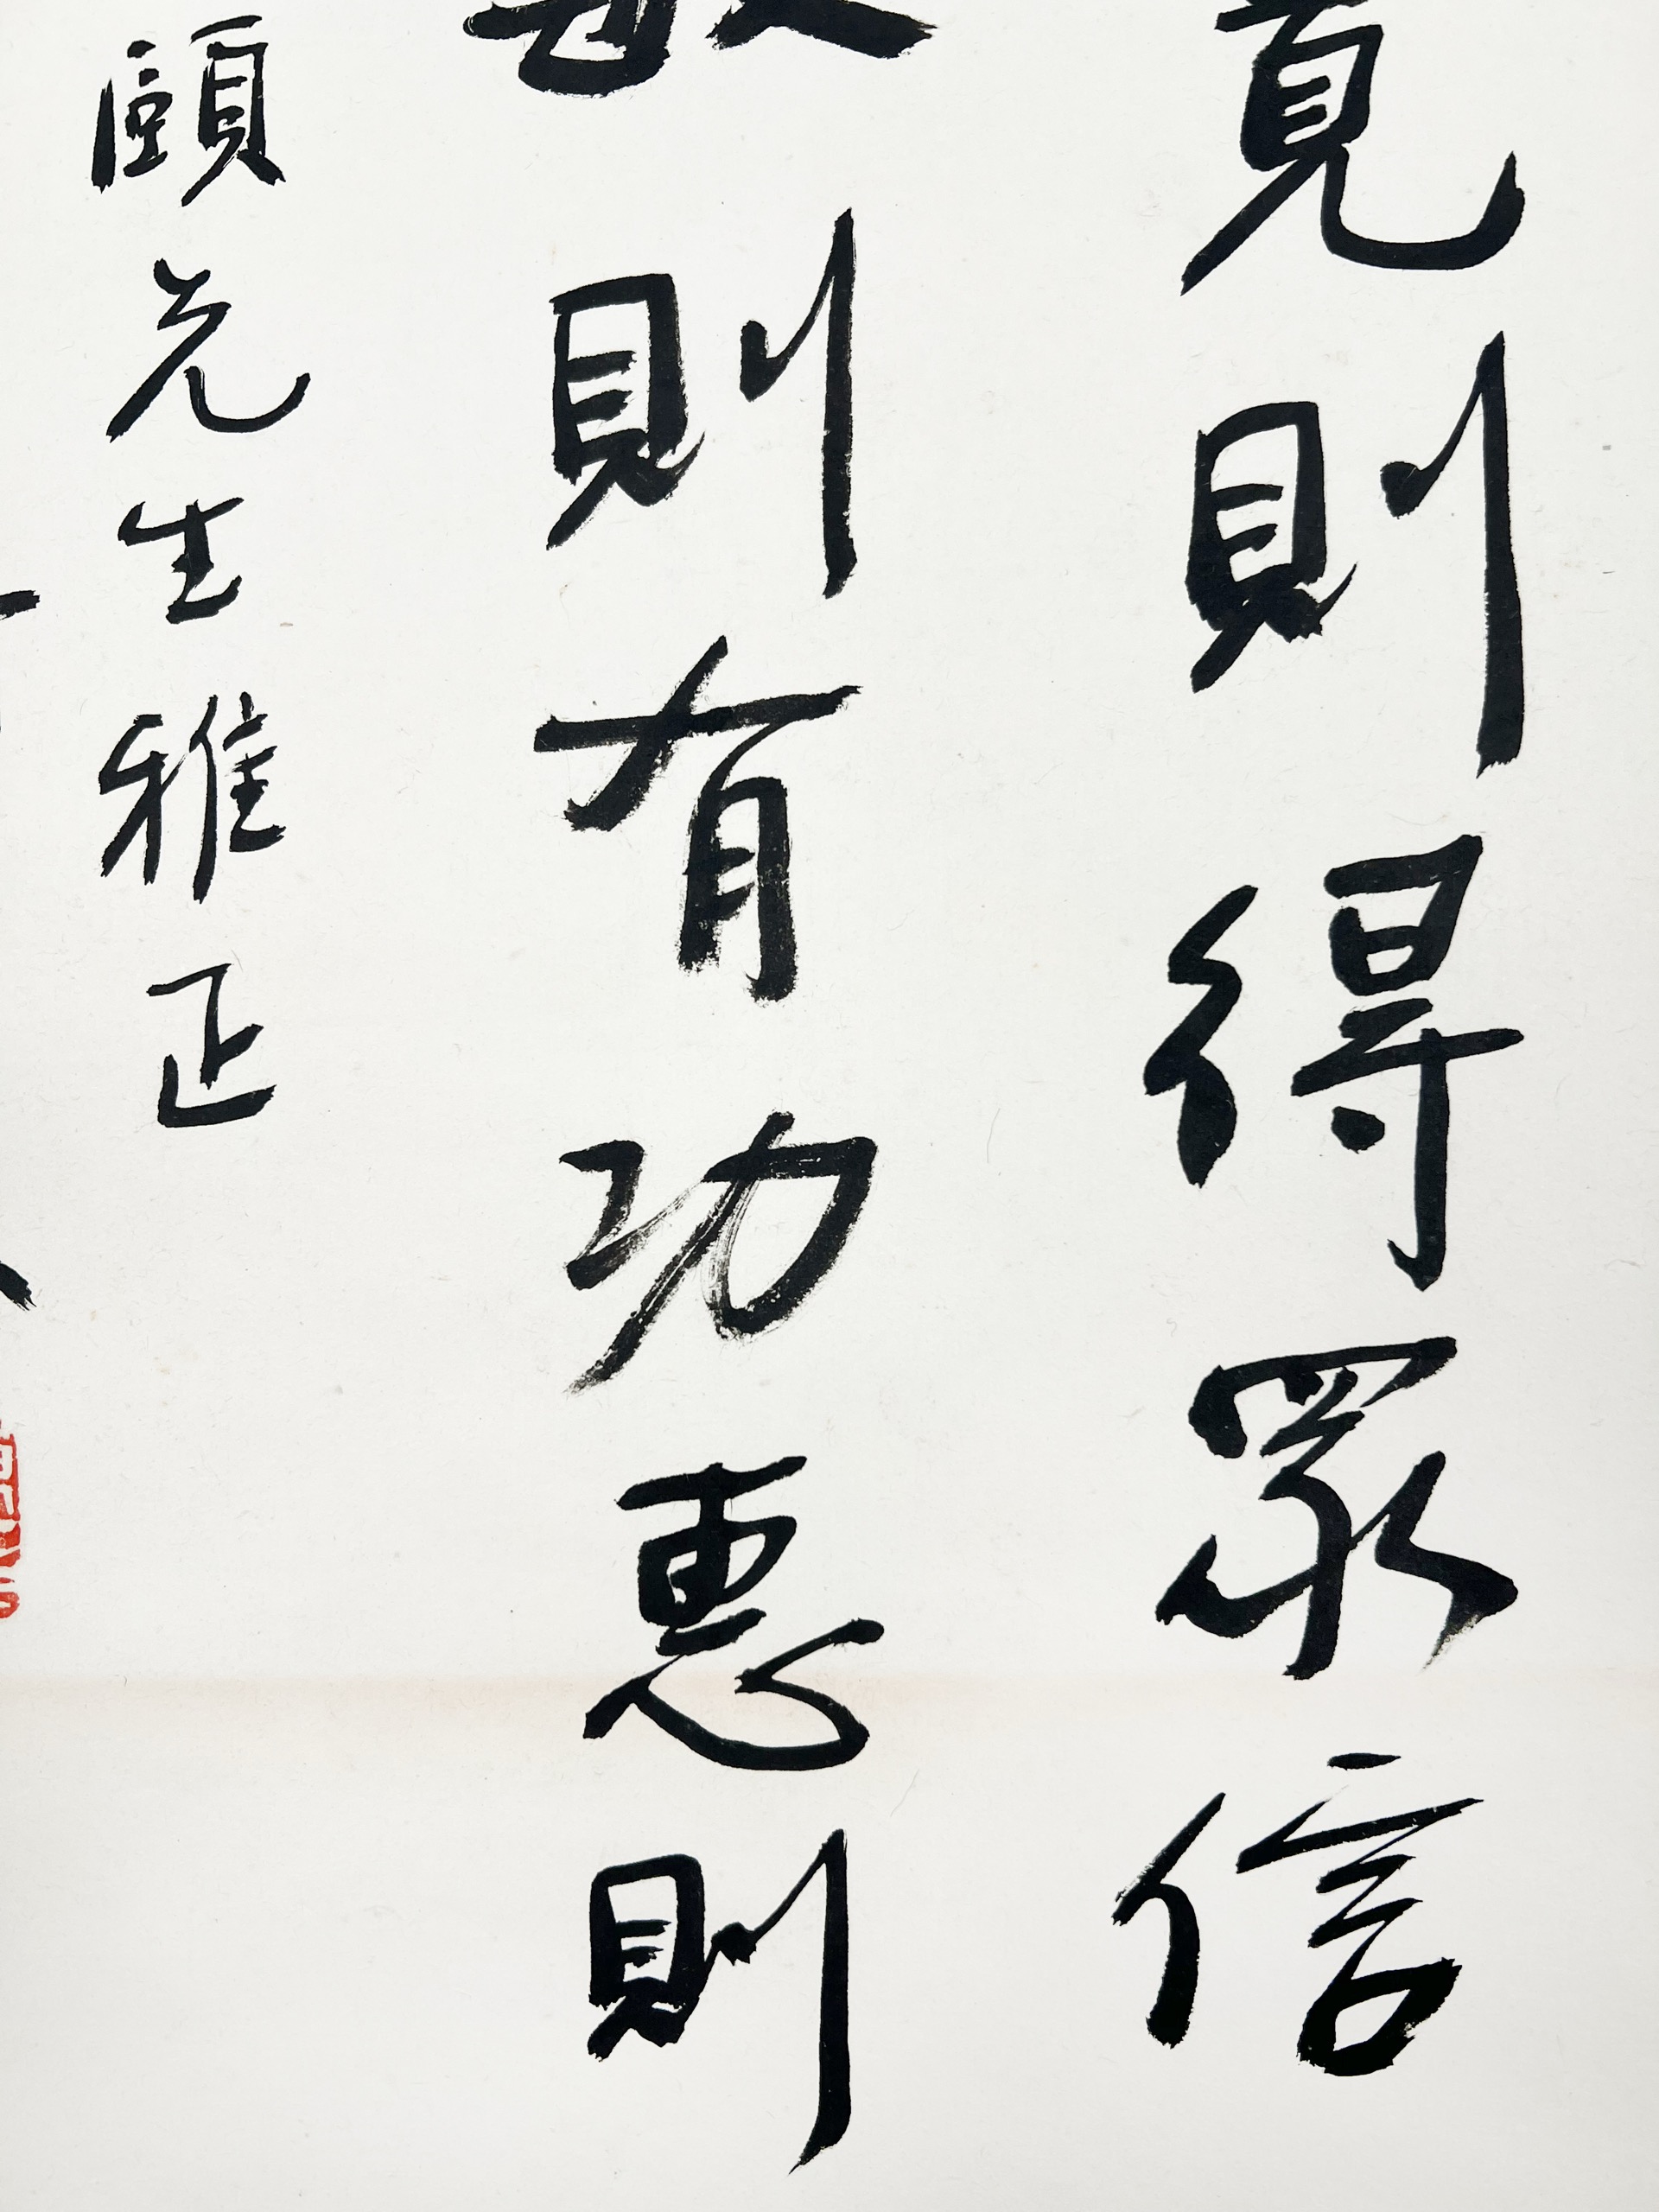 寬則得眾信
敏則有功惠則
頤先生雅正